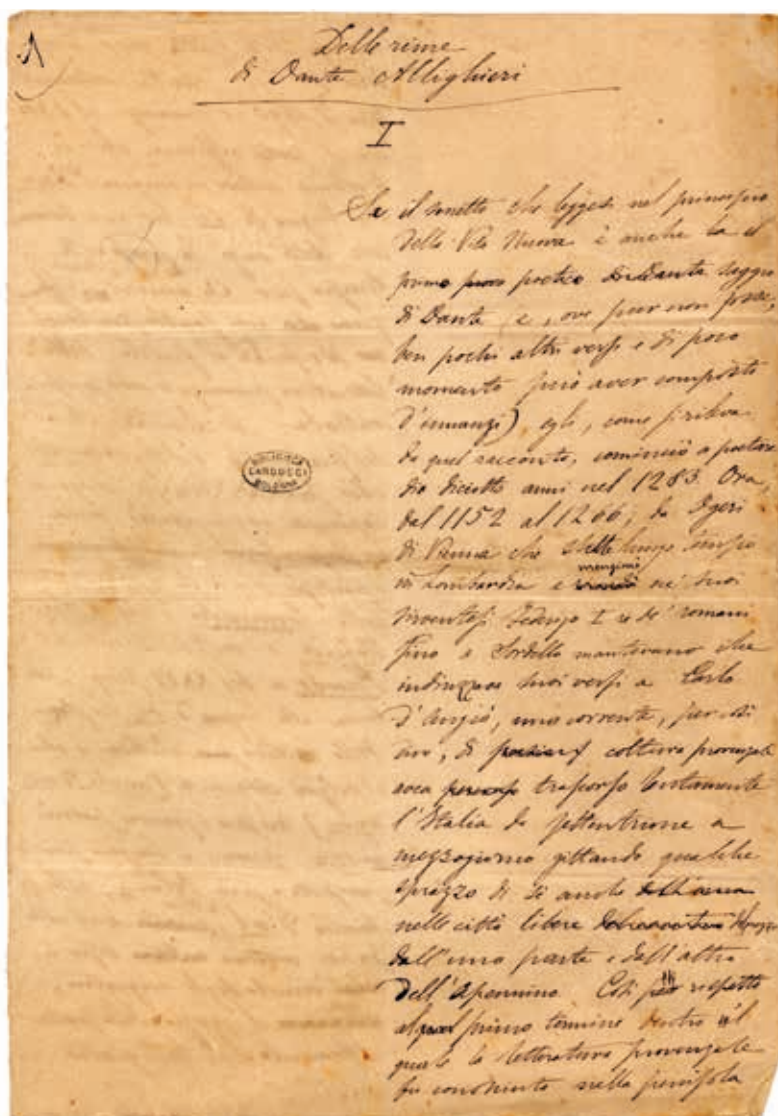 1)
Delle rime
di Dante Allighieri
I
Se il sonetto che leggesi nel principio
della Vita Nuova è anche la il
primo poetico di Dante saggio
di Dante (e, ove pur non fosse,
ben pochi altri versi e di poco
momento può aver composto
d'innanzi), egli, come si rileva
da quel racconto, cominciò a poetare
diciotto anni nel 1283. Ora,
dal 1152 al 1266, da Ogeri
di Vienna che stette lungo tempo
menzionò
in Lombardia e ne' suoi
Federigo I re de' romani
fino a Sordello mantovano che
indirizzava suoi versi a Carlo
d'Angiò, una corrente, per così
dire, di coltura provenzale
avea trascorso lentamente
l'Italia da settentrione a
mezzogiorno gittando qualche
sprazzo di sè anche
nelle città libere
dall'una parte e dall'altra
dell'Apennino. Così rispetto
al primo termine dentro il
quale la letteratura provenzale
fu conosciuta nella penisola
BIBLIOTECA
CARDUCCI
BOLOGNA